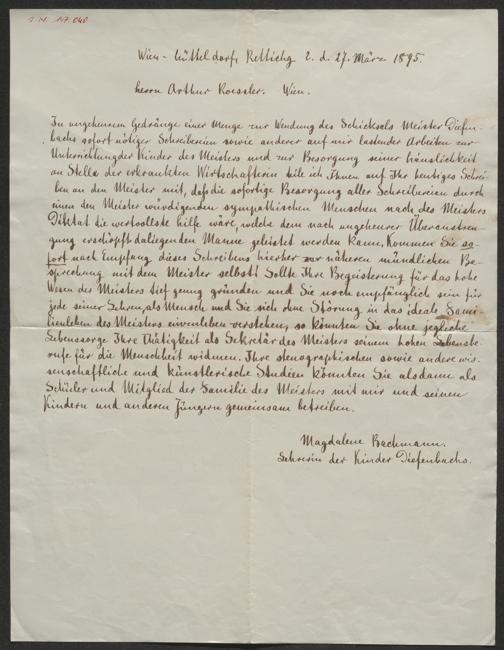 I. N. 147.040
Wien - Hütteldorf, Rettichg 2. d. 27. März 1895.
Herrn Arthur Roessler. Wien.
In ungeheurem Gedränge einer Menge zur Wendung des Schicksals Meister Diefen-
bachs sofort nötiger Schreibereien sowie anderer auf mir lastender Arbeiten zur
Unterrichtung der Kinder des Meisters und zur Besorgung seiner Häuslichkeit
an Stelle der erkrankten Wirtschafterin teile ich Ihnen auf Ihr heutiges Schrei-
ben an den Meister mit, daß die sofortige Besorgung aller Schreibereien durch
einen den Meister würdigenden sympathischen Menschen nach des Meisters
Diktat die wertvollste Hilfe wäre, welche dem nach ungeheurer Überanstren-
gung erschöpft daliegenden Manne geleistet werden kann. Kommen Sie so-
fort nach Empfang dieses Schreibens hierher zur näheren mündlichen Be-
sprechung mit dem Meister selbst! Sollte Ihre Begeisterung für das hohe
Wesen des Meisters tief genug gründen und Sie noch empfänglich sein für
jede seiner Lehren, als Mensch und Sie sich ohne Störung in das ideale Fami-
lienleben des Meisters einzuleben verstehen, so könnten Sie ohne jegliche
Lebenssorge Ihre Thätigkeit als Sekretär des Meisters seinem hohen Lebensbe-
rufe für die Menschheit widmen. Ihre stenographischen sowie andere wis-
senschaftliche und künstlerische Studien könnten Sie alsdann als
Schüler und Mitglied der Familie des Meisters mit mir und seinen
Kindern und anderen Jüngern gemeinsam betreiben.
Magdalene Bachmann.
Lehrerin der Kinder Diefenbachs.